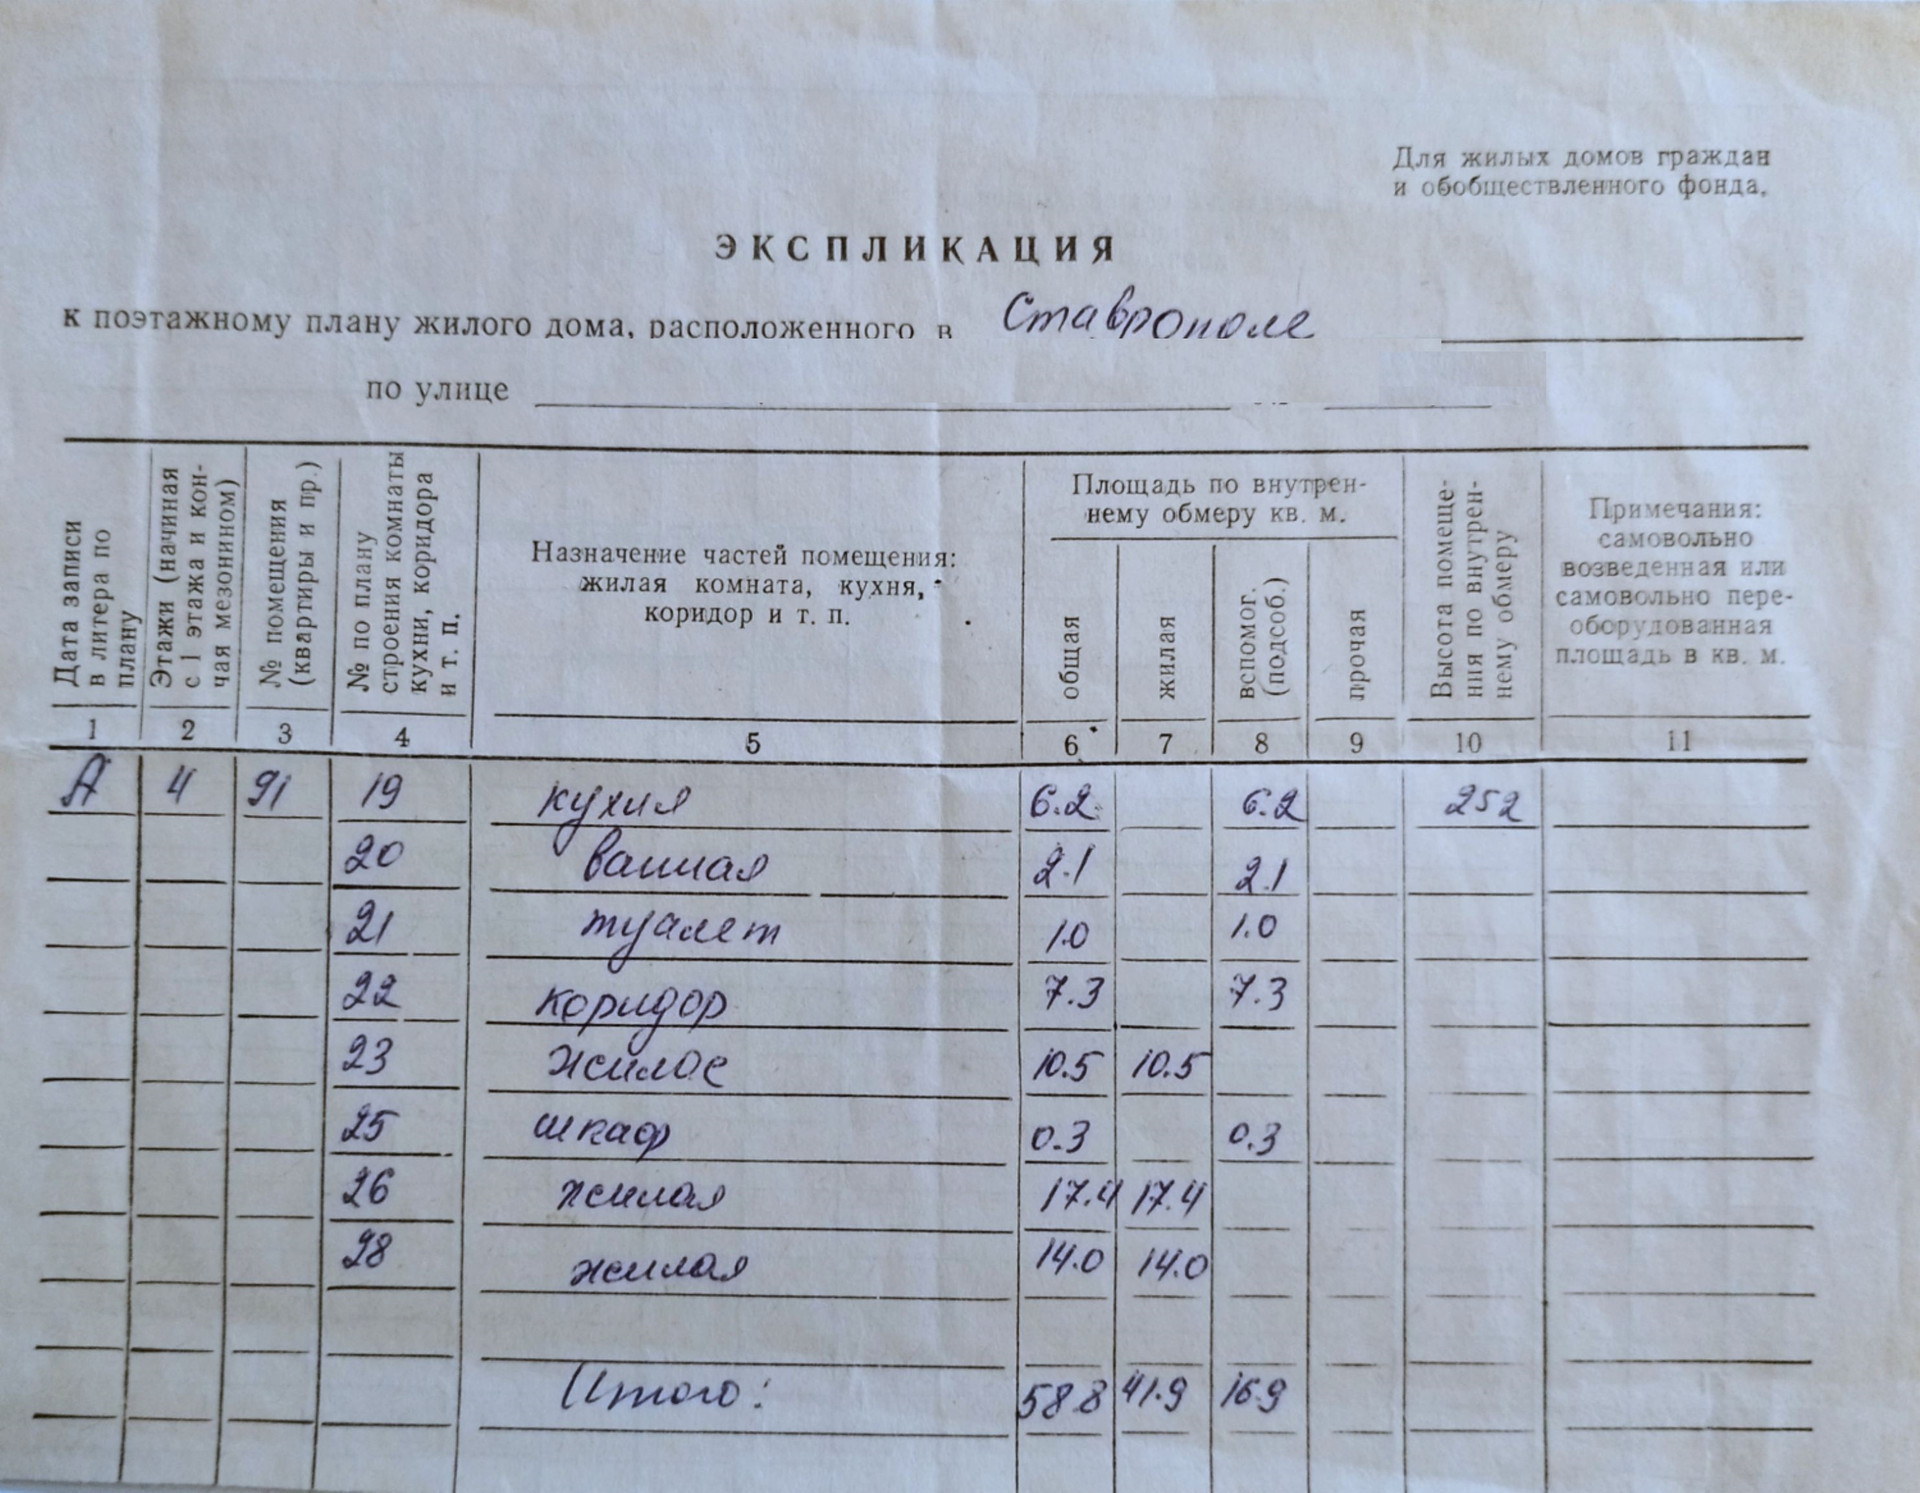 Для жилых домов граждан
и обобществленного фонда.
ЭКСПЛИКАЦИЯ
к поэтажному плану жилого дома, расположенного в Ставрополе
по улице
Дата записи
в литера по
плану
Этажи (начиная
с 1 этажа и кон-
чая мезонином)
№ помещения
(квартиры и пр.)
№ по плану
строения комнаты
кухни, коридора
и т. п.
Назначение частей помещения:
жилая комната, кухня,
коридор и т. п.
Площадь по внутрен-
нему обмеру кв. м.
общая
жилая
вспомог.
(подсоб.)
прочая
Высота помеще-
ния по внутрен-
нему обмеру
Примечания:
самовольно
возведенная или
самовольно пере-
оборудованная
площадь в кв. м.
1 2 3 4 5 6 7 8 9 10 11
А 4 91 19 кухня 6.2 6.2 252
20 ванная 2.1 2.1
21 туалет 1.0 1.0
22 коридор 7.3 7.3
23 жилое 10.5 10.5
25 шкаф 0.3 0.3
26 жилая 17.4 17.4
28 жилая 14.0 14.0
Итого: 58.8 41.9 16.9